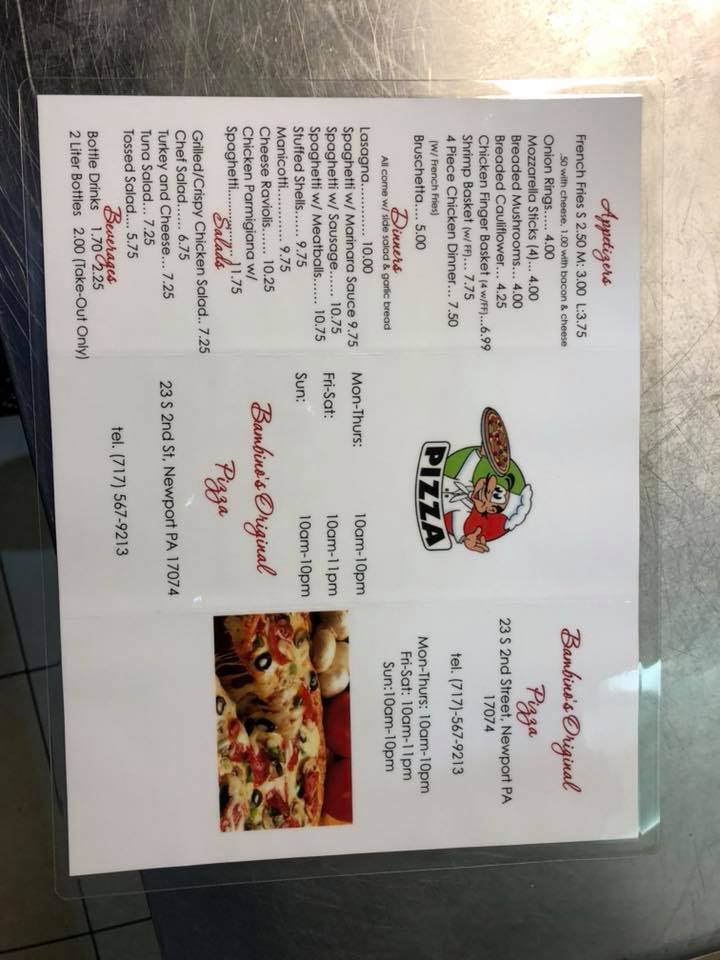 Appetizers
French Fries S 2.50 M: 3.00 L:3.75
.50 with cheese, 1.00 with bacon & cheese
Onion Rings..... 4.00
Mozzarella Sticks (4)... 4.00
Breaded Mushrooms... 4.00
Breaded Cauliflower... 4.25
Chicken Finger Basket (4 w/FF)...6.99
Shrimp Basket (w/ FF)... 7.75
4 Piece Chicken Dinner... 7.50
(W/ French Fries)
Bruschetta.... 5.00
Dinners
All come w/ side salad & garlic bread
Lasagna............... 10.00
Spaghetti w/ Marinara Sauce 9.75
Spaghetti w/ Sausage...... 10.75
Spaghetti w/ Meatballs...... 10.75
Stuffed Shells...... 9.75
Manicotti.............. 9.75
Cheese Raviolis...... 10.25
Chicken Parmigiana w/
Spaghetti............... 11.75
Salads
Grilled/Crispy Chicken Salad.. 7.25
Chef Salad...... 6.75
Turkey and Cheese... 7.25
Tuna Salad... 7.25
Tossed Salad.... 5.75
Beverages
Bottle Drinks 1.70/2.25
2 Liter Bottles 2.00 (Take-Out Only)
PIZZA
Mon-Thurs: 10am-10pm
Fri-Sat: 10am-11pm
Sun: 10am-10pm
Bambino's Original
Pizza
23 S 2nd St, Newport PA 17074
tel. (717) 567-9213
Bambino's Original
Pizza
23 S 2nd Street, Newport PA
17074
tel. (717)-567-9213
Mon-Thurs: 10am-10pm
Fri-Sat: 10am-11pm
Sun:10am-10pm